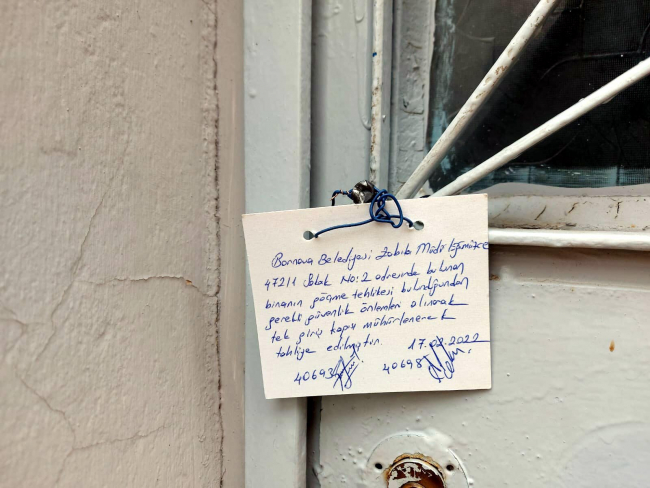 Bornova Belediyesi Zabıta Müdürlüğümüzce
47211 Sokak No:2 adresinde bulunan
binanın göçme tehlikesi bulunduğundan
gerekli güvenlik önlemleri alınarak
tek giriş kapısı mühürlenerek
tahliye edilmiştir. 17.02.2022
40693 40698